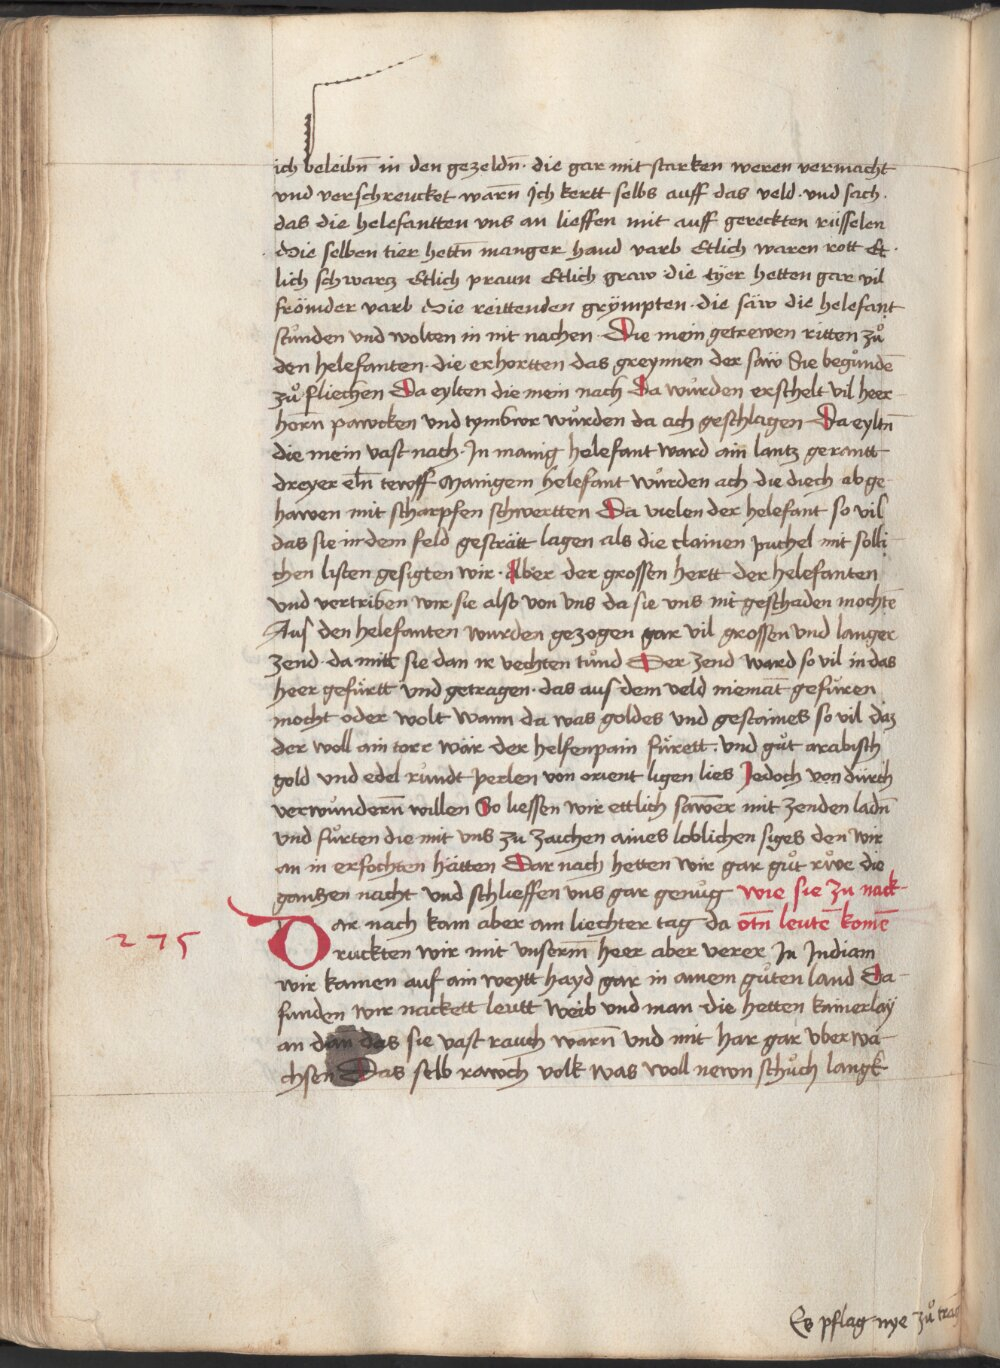 ich beleibn̄ in den gezeldn̄· die gar mit starken weren vermacht
vnd verschrencket warn̄ Ich kertt selbs auff das veld· vnd sach·
das die helefantten vns an lieffen mit auff gereckten rüsselen
Die selben tier hettn̄ manger hand varb Etlich waren rott Et·
lich schwarcz Etlich praun Etlich graw die tÿer hetten gar vil
frömder varb Die reittenden grÿmpten· die säw die helefant
stůnden vnd wolten in nit nachen· Die mein getrewen ritten zů
den helefanten· die erhortten das greynnen der saẅ Sie begůndē
zů fliechen Da eylten die mein nach Da wůrden erschelt vil heer-
horn̄ pawcken vnd tymbwr wůrden da ach geschlagen Da eyltn̄
die mein vast nach· In manig helefant ward ain lantz gerantt
dreyer eln̄ tewff Manigem helefant wůrden ach die diech ab ge-
hawen mit scharpfen schwertten Da vielen der helefant so vil
das sie in dem feld gesträtt lagen als die clainen puchel mit solli-
chen listen gesigten wir· Aber der grossen hertt der helefanten
vnd vertriben wir sie also von vns da sie vns nit geschaden mochtē
Aus den helefanten wurden gezogen gar vil grossen vnd langer
zend· da mitt sie dan ir vechten tůnd Der zend ward so vil in das
heer gefůrtt vnd getragen· das aus dem veld niemāt gefůren
mocht oder wolt wann da was goldes vnd gestaines so vil daz
der woll ain torr wär der helfenpain fůrett· vnd gůt arabisch
gold vnd edel růndt perlen von orient ligen lies Jedoch von dürch
verwůndern̄ willen So liessen wir ettlich sawmer mit zenden ladn̄
vnd fůrten die mit vns zu zaichen aines loblichen siges den wir
an in erfochten hätten Dar nach hetten wir gar gůt růwe die
gantzen nacht vnd schlieffen vns gar genůg wie sie zu nack-
Dar nach kam aber am liechter tag da otn̄ leutē komē
275
ruckten wir mit vnserm̄ heer aber verer In Indiam
wir kamen auf ain weytt hayd gar in ainem gůten land Da-
funden wir nackett leutt weib vnd man die hetten kainerlaÿ
an dan das sie vast rauch warn̄ vnd mit har gar vberwa-
chsen Das selb rawch volk was woll newn schůch langk
Es pflag nye zů trag